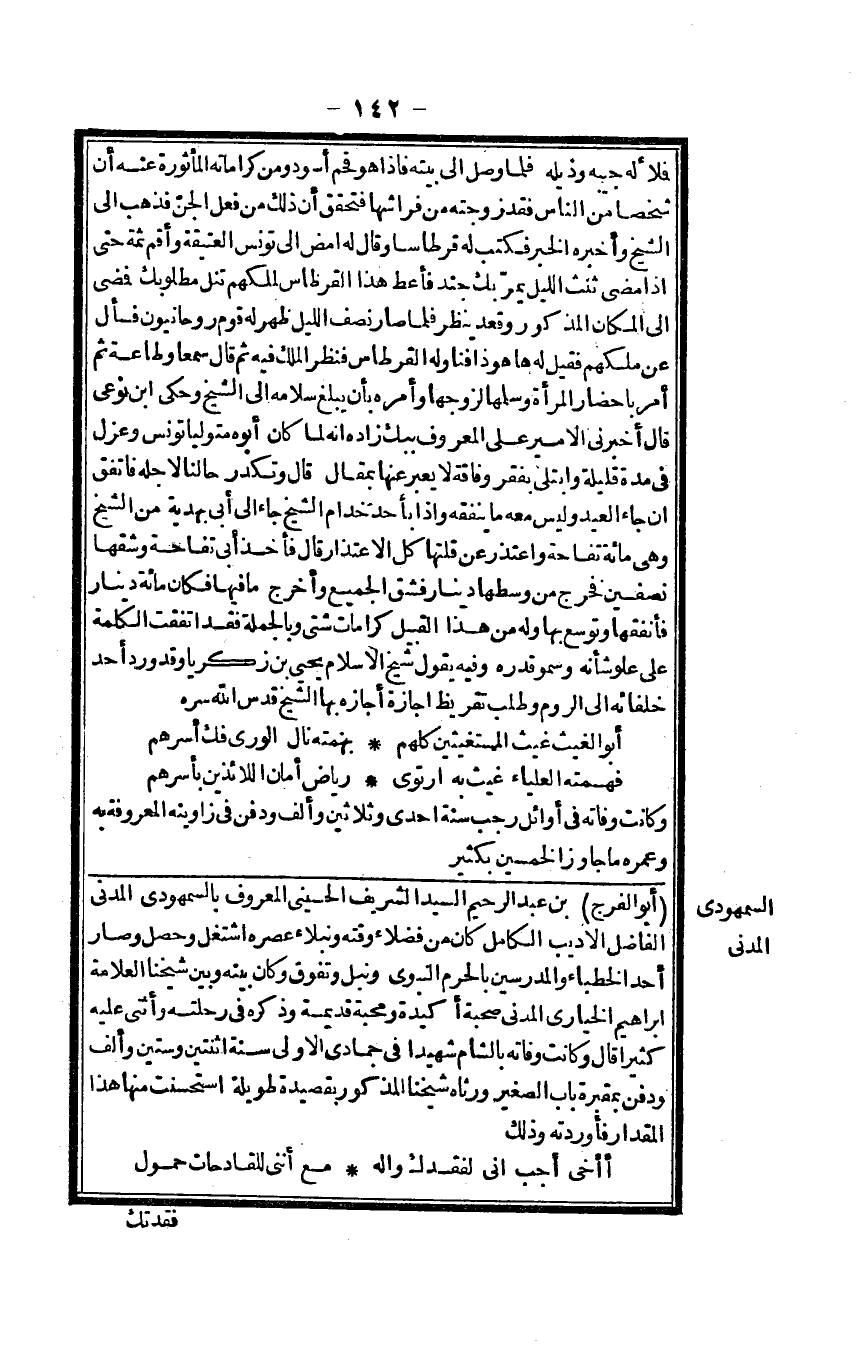 – ١٤٢ –
فلاً له جيبه وذيله فلما وصل الى بيته فاذا هو فحم أسود ومن كراماته المأثورة عنه أن
شخصا من الناس فقد زوجته من فراشها فتحقق أن ذلك من فعل الجن فذهب الى
الشيخ وأخبره الخبر فكتب له قرطاسا وقال له امض الى تونس العتيقة وأقم ثمة حتى
اذا مضى ثلث الليل يمر بك جند فأعط هذا القرطاس لملكهم تنل مطلوبك فمضى
الى المكان المذكور وقعد ينظر فلما صار نصف الليل ظهر له قوم روحانيون فسأل
عن ملكهم فقيل له ها هو ذا فناوله القرطاس فنظر الملك فيه ثم قال سمعا وطاعة ثم
أمر باحضار المرأة وسلمها لزوجها وأمره بأن يبلغ سلامه الى الشيخ وحكى ابن نوعى
قال أخبرنى الامير على المعروف ببك زاده انه لما كان أبوه متوليا تونس وعزل
فى مدة قليلة وابتلى بفقر وفاقة لا يعبر عنها بمقال قال وتكدر حالنا لاجله فاتفق
ان جاء العيد وليس معه ما ينفقه واذا بأحد خدام الشيخ جاء الى أبى بهدية من الشيخ
وهى مائة تفاحة واعتذر عن قلتها كل الاعتذار قال فأخذ أبى تفاحة وشقها
نصفين فخرج من وسطها دينار فشق الجميع وأخرج ما فيها فكان مائة دينار
فأنفقها وتوسع بها وله من هذا القبيل كرامات شتى وبالجملة فقد اتفقت الكلمة
على علو شأنه وسمو قدره وفيه يقول شيخ الاسلام يحيى بن زكريا وقد ورد أحد
خلفائه الى الروم وطلب تقريظ اجازة أجازه بها الشيخ قدس الله سره
أبو الغيث غيث المستغيثين كلهم * بهمته نال الورى فك أسرهم
فهمته العلياء غيث به ارتوى * رياض أمان اللائذين بأسرهم
وكانت وفاته فى أوائل رجب سنة احدى وثلاثين وألف ودفن فى زاويته المعروفة به
وعمره ما جاوز الخمسين بكثير
السمهودى
المدنى
(أبو الفرج) بن عبد الرحيم السيد الشريف الحسينى المعروف بالسمهودى المدنى
الفاضل الاديب الكامل كان من فضلاء وقته ونبلاء عصره اشتغل وحصل وصار
أحد الخطباء والمدرسين بالحرم النبوى ونبل وتفوق وكان بينه وبين شيخنا العلامة
ابراهيم الخيارى المدنى صحبة أكيدة ومحبة قديمة وذكره فى رحلته وأثنى عليه
كثيرا قال وكانت وفاته بالشام شهيدا فى جمادى الاولى سنة اثنتين وستين وألف
ودفن بمقبرة باب الصغير ورثاه شيخنا المذكور بقصيدة طويلة استحسنت منها هذا
المقدار فأوردته وذلك
أأخى أجب انى لفقدك واله * مع أننى للقادحات حمول
فقدتك